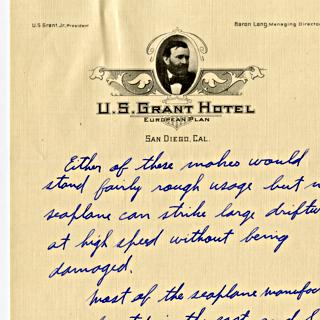 U.S Grant, Jr. President
Baron Long, Managing Director
U.S. GRANT HOTEL
EUROPEAN PLAN
SAN DIEGO, CAL.
Either of these makes would
stand fairly rough usage but n
seaplane can strike large driftw
at high speed without being
damaged.
Most of the seaplane manufac